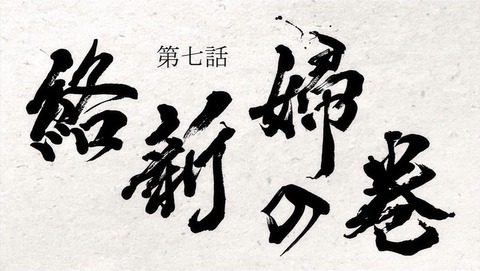 第七話
絡新婦の巻